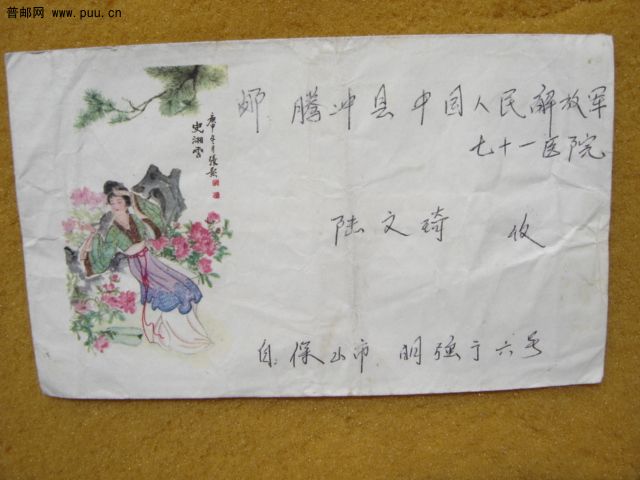 普邮网
www.puu.cn
邮 腾冲县 中国人民解放军
七十一医院
陆文琦 收
自 保山市
六号
庚申
史湘云